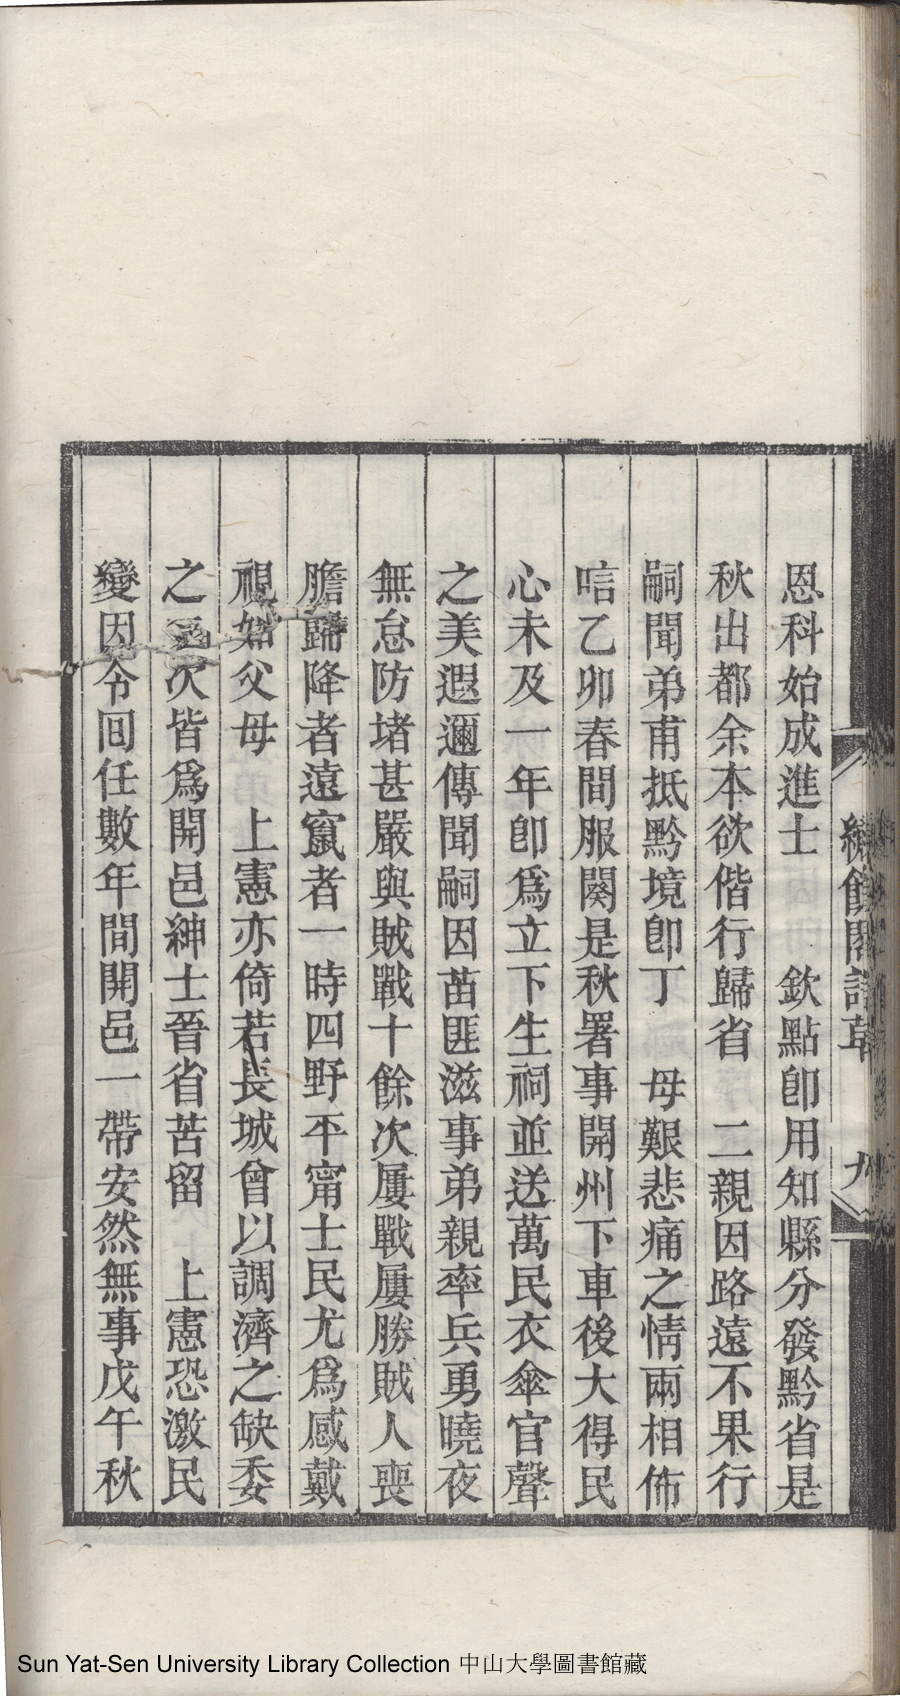 恩科始成進士　欽點卽用知縣分發黔省是
秋出都余本欲偕行歸省　二親因路遠不果行
嗣聞弟甫抵黔境卽丁　母艱悲痛之情兩相佈
唁乙卯春間服闋是秋署事開州下車後大得民
心未及一年卽爲立下生祠並送萬民衣傘官聲
之美遐邇傳聞嗣因苗匪滋事弟親率兵勇曉夜
無怠防堵甚嚴與賊戰十餘次屢戰屢勝賊人喪
膽歸降者遠竄者一時四野平甯士民尤爲感戴
視如父母　上憲亦倚若長城曾以調濟之缺委
之　次皆爲開邑紳士晉省苦留　上憲恐激民
變因令囘任數年間開邑一帶安然無事戊午秋
繡餘閣詩草
九
Sun Yat-Sen University Library Collection 中山大學圖書館藏